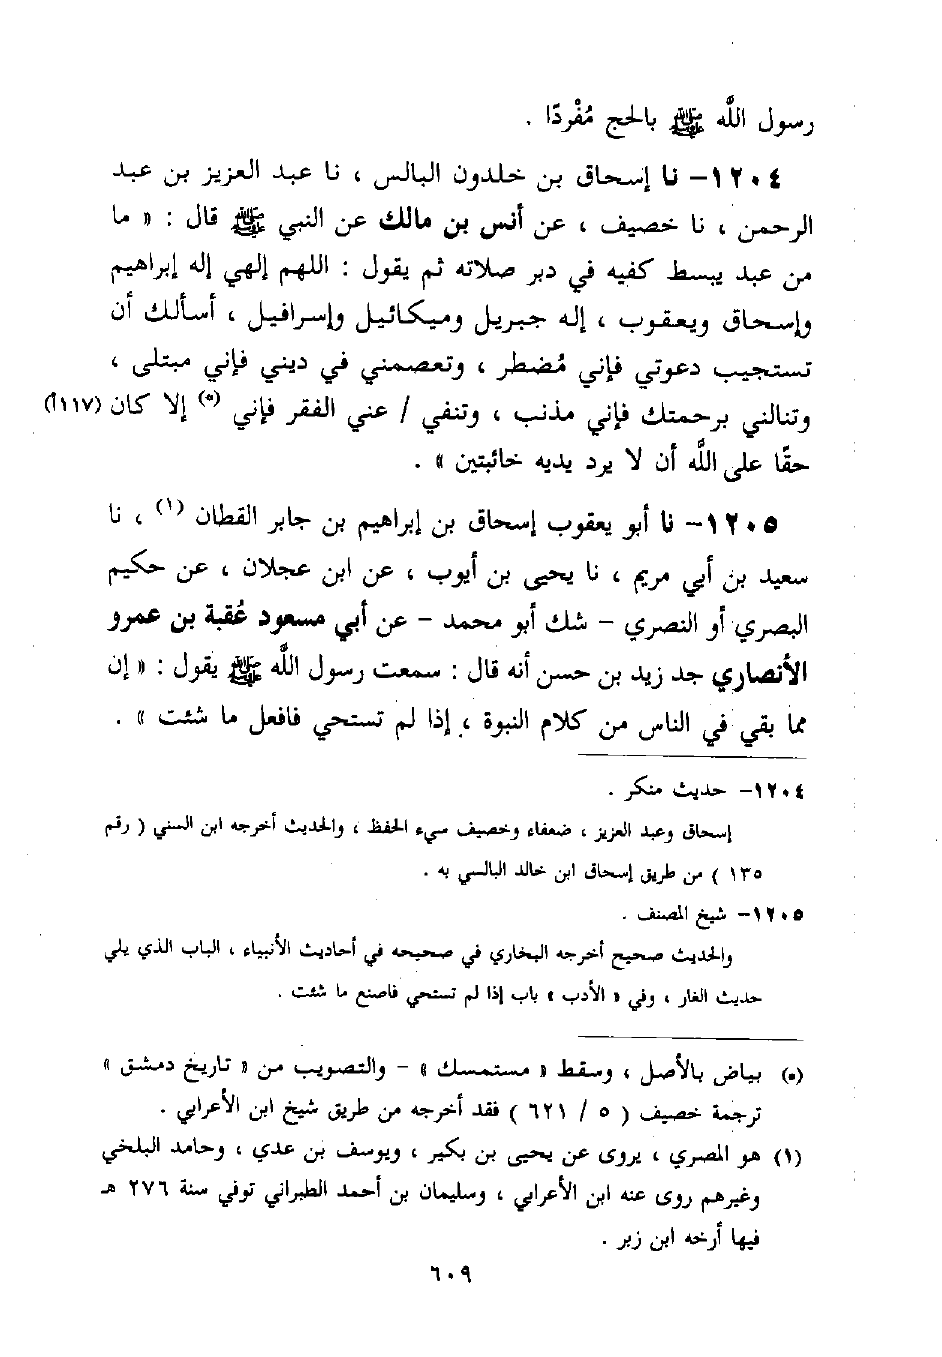 رسول اللَّه ﷺ بالحج مُفْردًا .
١٢٠٤- نا إسحاق بن خلدون البالس ، نا عبد العزيز بن عبد
الرحمن ، نا خصيف ، عن أنس بن مالك عن النبي ﷺ قال : « ما
من عبد يبسط كفيه في دبر صلاته ثم يقول : اللهم إلهي إله إبراهيم
وإسحاق ويعقوب ، إله جبريل وميكائيل وإسرافيل ، أسألك أن
تستجيب دعوتي فإني مُضطر ، وتعصمني في ديني فإني مبتلى ،
وتنالني برحمتك فإني مذنب ، وتنفي / عني الفقر فإني (٥) إلا كان (١١٧أ)
حقًا على اللَّه أن لا يرد يديه خائبتين » .
١٢٠٥- نا أبو يعقوب إسحاق بن إبراهيم بن جابر القطان (١) ، نا
سعيد بن أبي مريم ، نا يحيى بن أيوب ، عن ابن عجلان ، عن حكيم
البصري أو النصري - شك أبو محمد - عن أبي مسعود عُقبة بن عمرو
الأنصاري جد زيد بن حسن أنه قال : سمعت رسول اللَّه ﷺ يقول : « إن
مما بقي في الناس من كلام النبوة ، إذا لم تستحي فافعل ما شئت » .
١٢٠٤- حديث منكر .
إسحاق وعبد العزيز ، ضعفاء وخصيف سيء الحفظ ، والحديث أخرجه ابن السني ( رقم
١٣٥ ) من طريق إسحاق ابن خالد البالسي به .
١٢٠٥- شيخ المصنف .
والحديث صحيح أخرجه البخاري في صحيحه في أحاديث الأنبياء ، الباب الذي يلي
حديث الغار ، وفي « الأدب » باب إذا لم تستحي فاصنع ما شئت .
(٥) بياض بالأصل ، وسقط « مستمسك » - والتصويب من « تاريخ دمشق »
ترجمة خصيف ( ٥ / ٦٢١ ) فقد أخرجه من طريق شيخ ابن الأعرابي .
(١) هو المصري ، يروى عن يحيى بن بكير ، ويوسف بن عدي ، وحامد البلخي
وغيرهم روى عنه ابن الأعرابي ، وسليمان بن أحمد الطبراني توفي سنة ٢٧٦ هـ
فيها أرخه ابن زبر .
٦٠٩